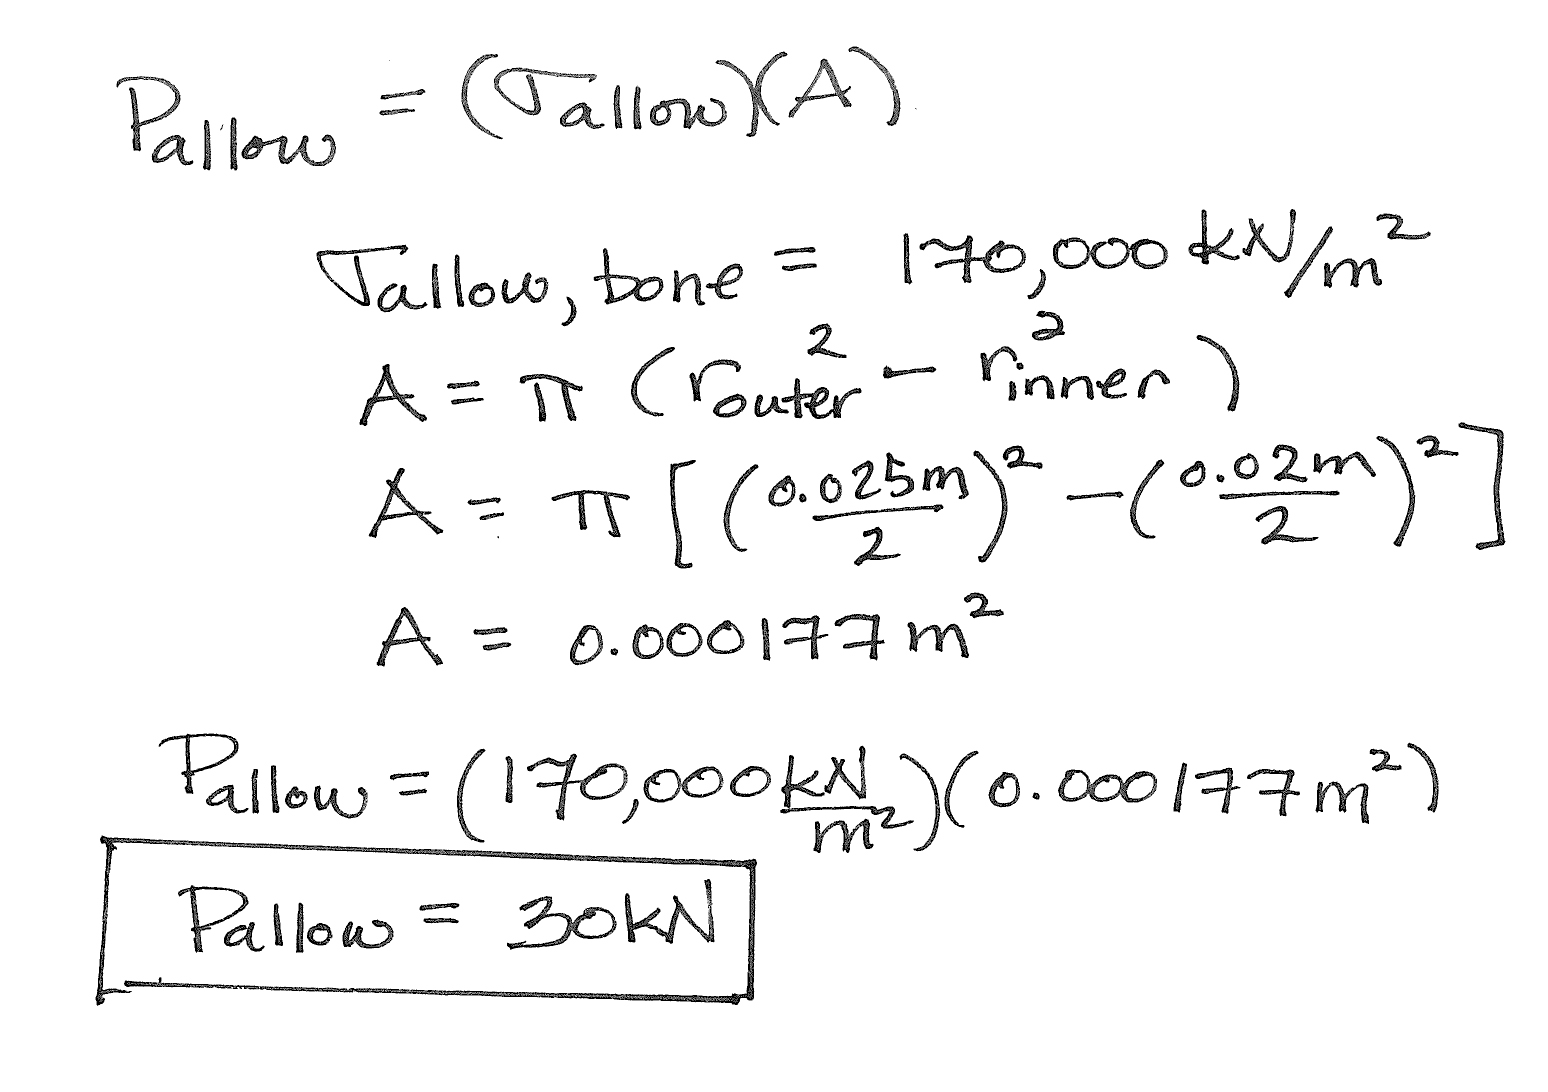 Pallow = (σallow)(A)
σallow, bone = 170,000 kN/m²
A = π (r²outer - r²inner)
A = π [(0.025m/2)² - (0.02m/2)²]
A = 0.000177 m²
Pallow = (170,000 kN/m²)(0.000177 m²)
Pallow = 30kN